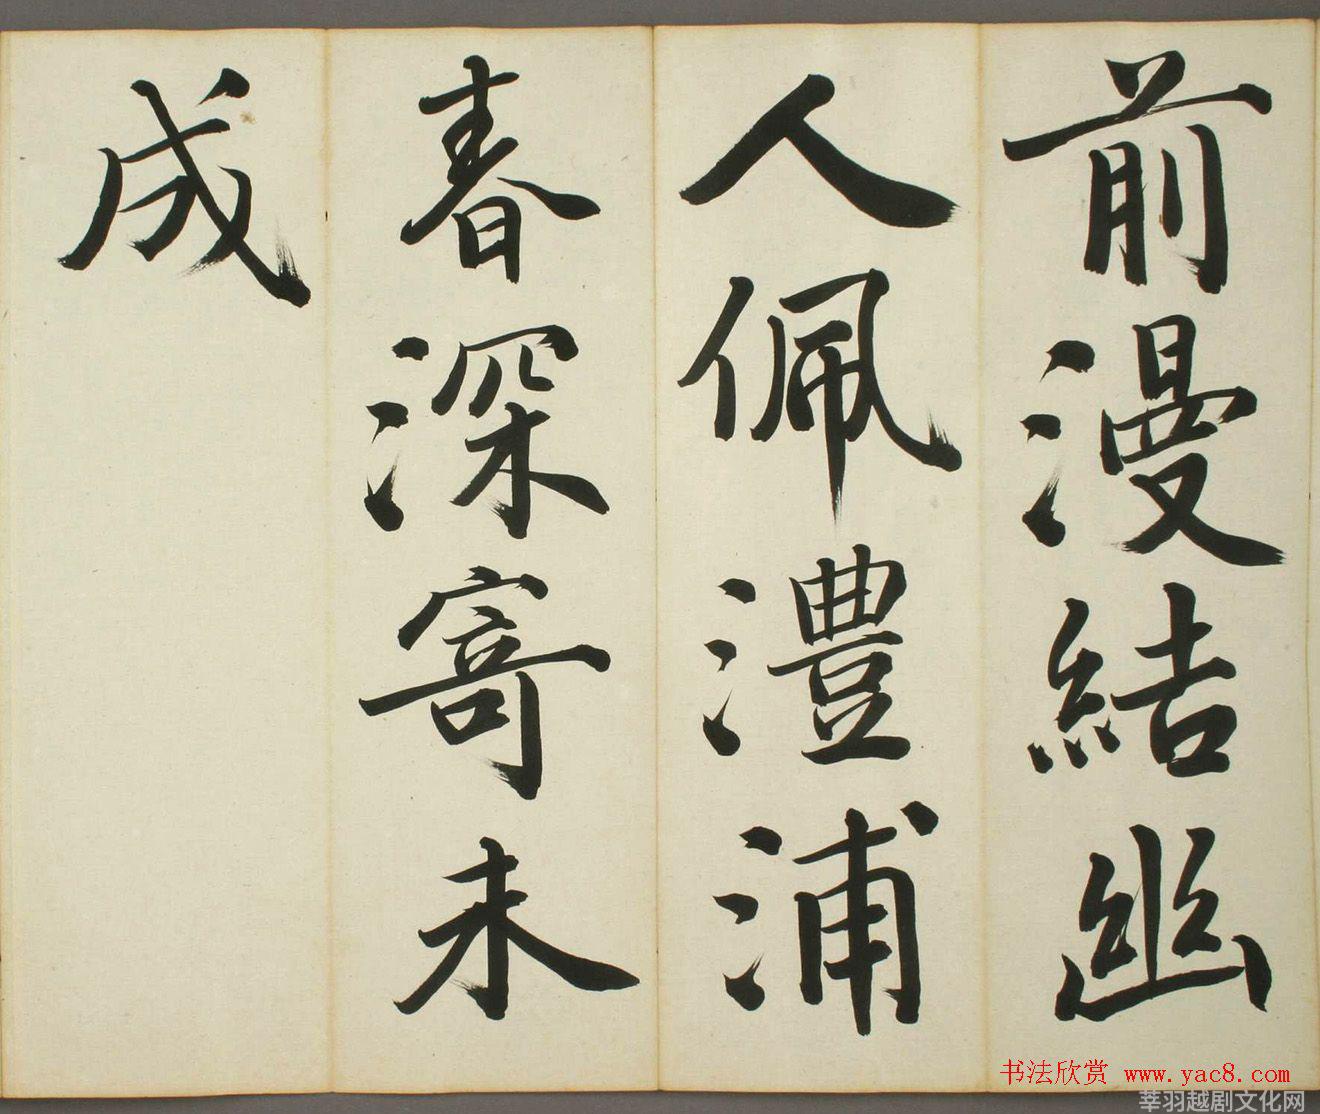 前漫結幽
人佩澧浦
春深寄未
成
书法欣赏 www.yac8.com
莘羽越剧文化网